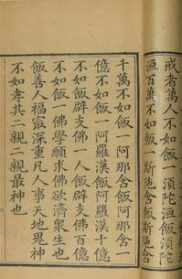 戒者萬人不如飯一須陀洹飯須陀
洹百萬不如飯一斯陀含飯斯陀含
千萬不如飯一阿那含飯阿那含一
億不如飯一阿羅漢飯阿羅漢十億
不如飯辟支佛一人飯辟支佛百億
不如飯一佛學願求佛欲濟衆生也
飯善人福㝡深重凡人事天地鬼神
不如孝其二親二親㝡神也